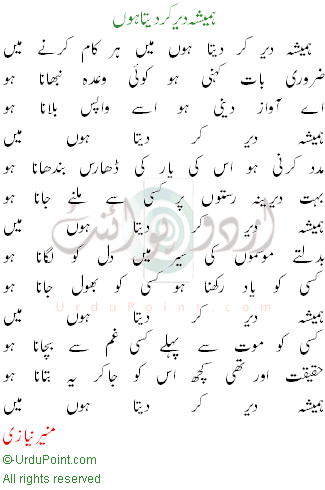 ہمیشہ دیر کر دیتا ہوں
ہمیشہ دیر کر دیتا ہوں میں ہر کام کرنے میں
ضروری بات کہنی ہو کوئی وعدہ نبھانا ہو
اے آواز دینی ہو اسے واپس بلانا ہو
ہمیشہ دیر کر دیتا ہوں میں
مدد کرنی ہو اس کی یار کی ڈھارس بندھانا ہو
بہت دیرینہ رستوں پر کسی سے ملنے جانا ہو
ہمیشہ دیر کر دیتا ہوں میں
بدلتے موسموں کی سیر میں دل کو لگانا ہو
کسی کو یاد رکھنا ہو کسی کو بھول جانا ہو
ہمیشہ دیر کر دیتا ہوں میں
کسی کو موت سے پہلے کسی غم سے بچانا ہو
حقیقت اور تھی کچھ اس کو جاکر یہ بتانا ہو
ہمیشہ دیر کر دیتا ہوں میں
منیر نیازی
©UrduPoint.com
All right reserved
اردو پوائنٹ
UrduPoint.com